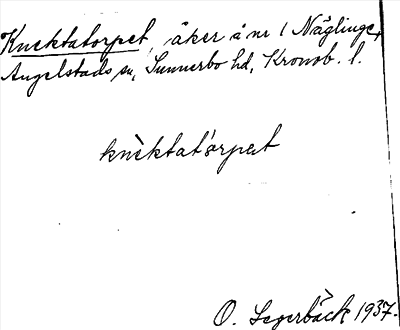 Knektatorpet, åker å nr 1 Näglinge,
Angelstads sn, Sunnerbo hd, Kronob. l.
knèktatårpət
O. Segerbäck 1937.